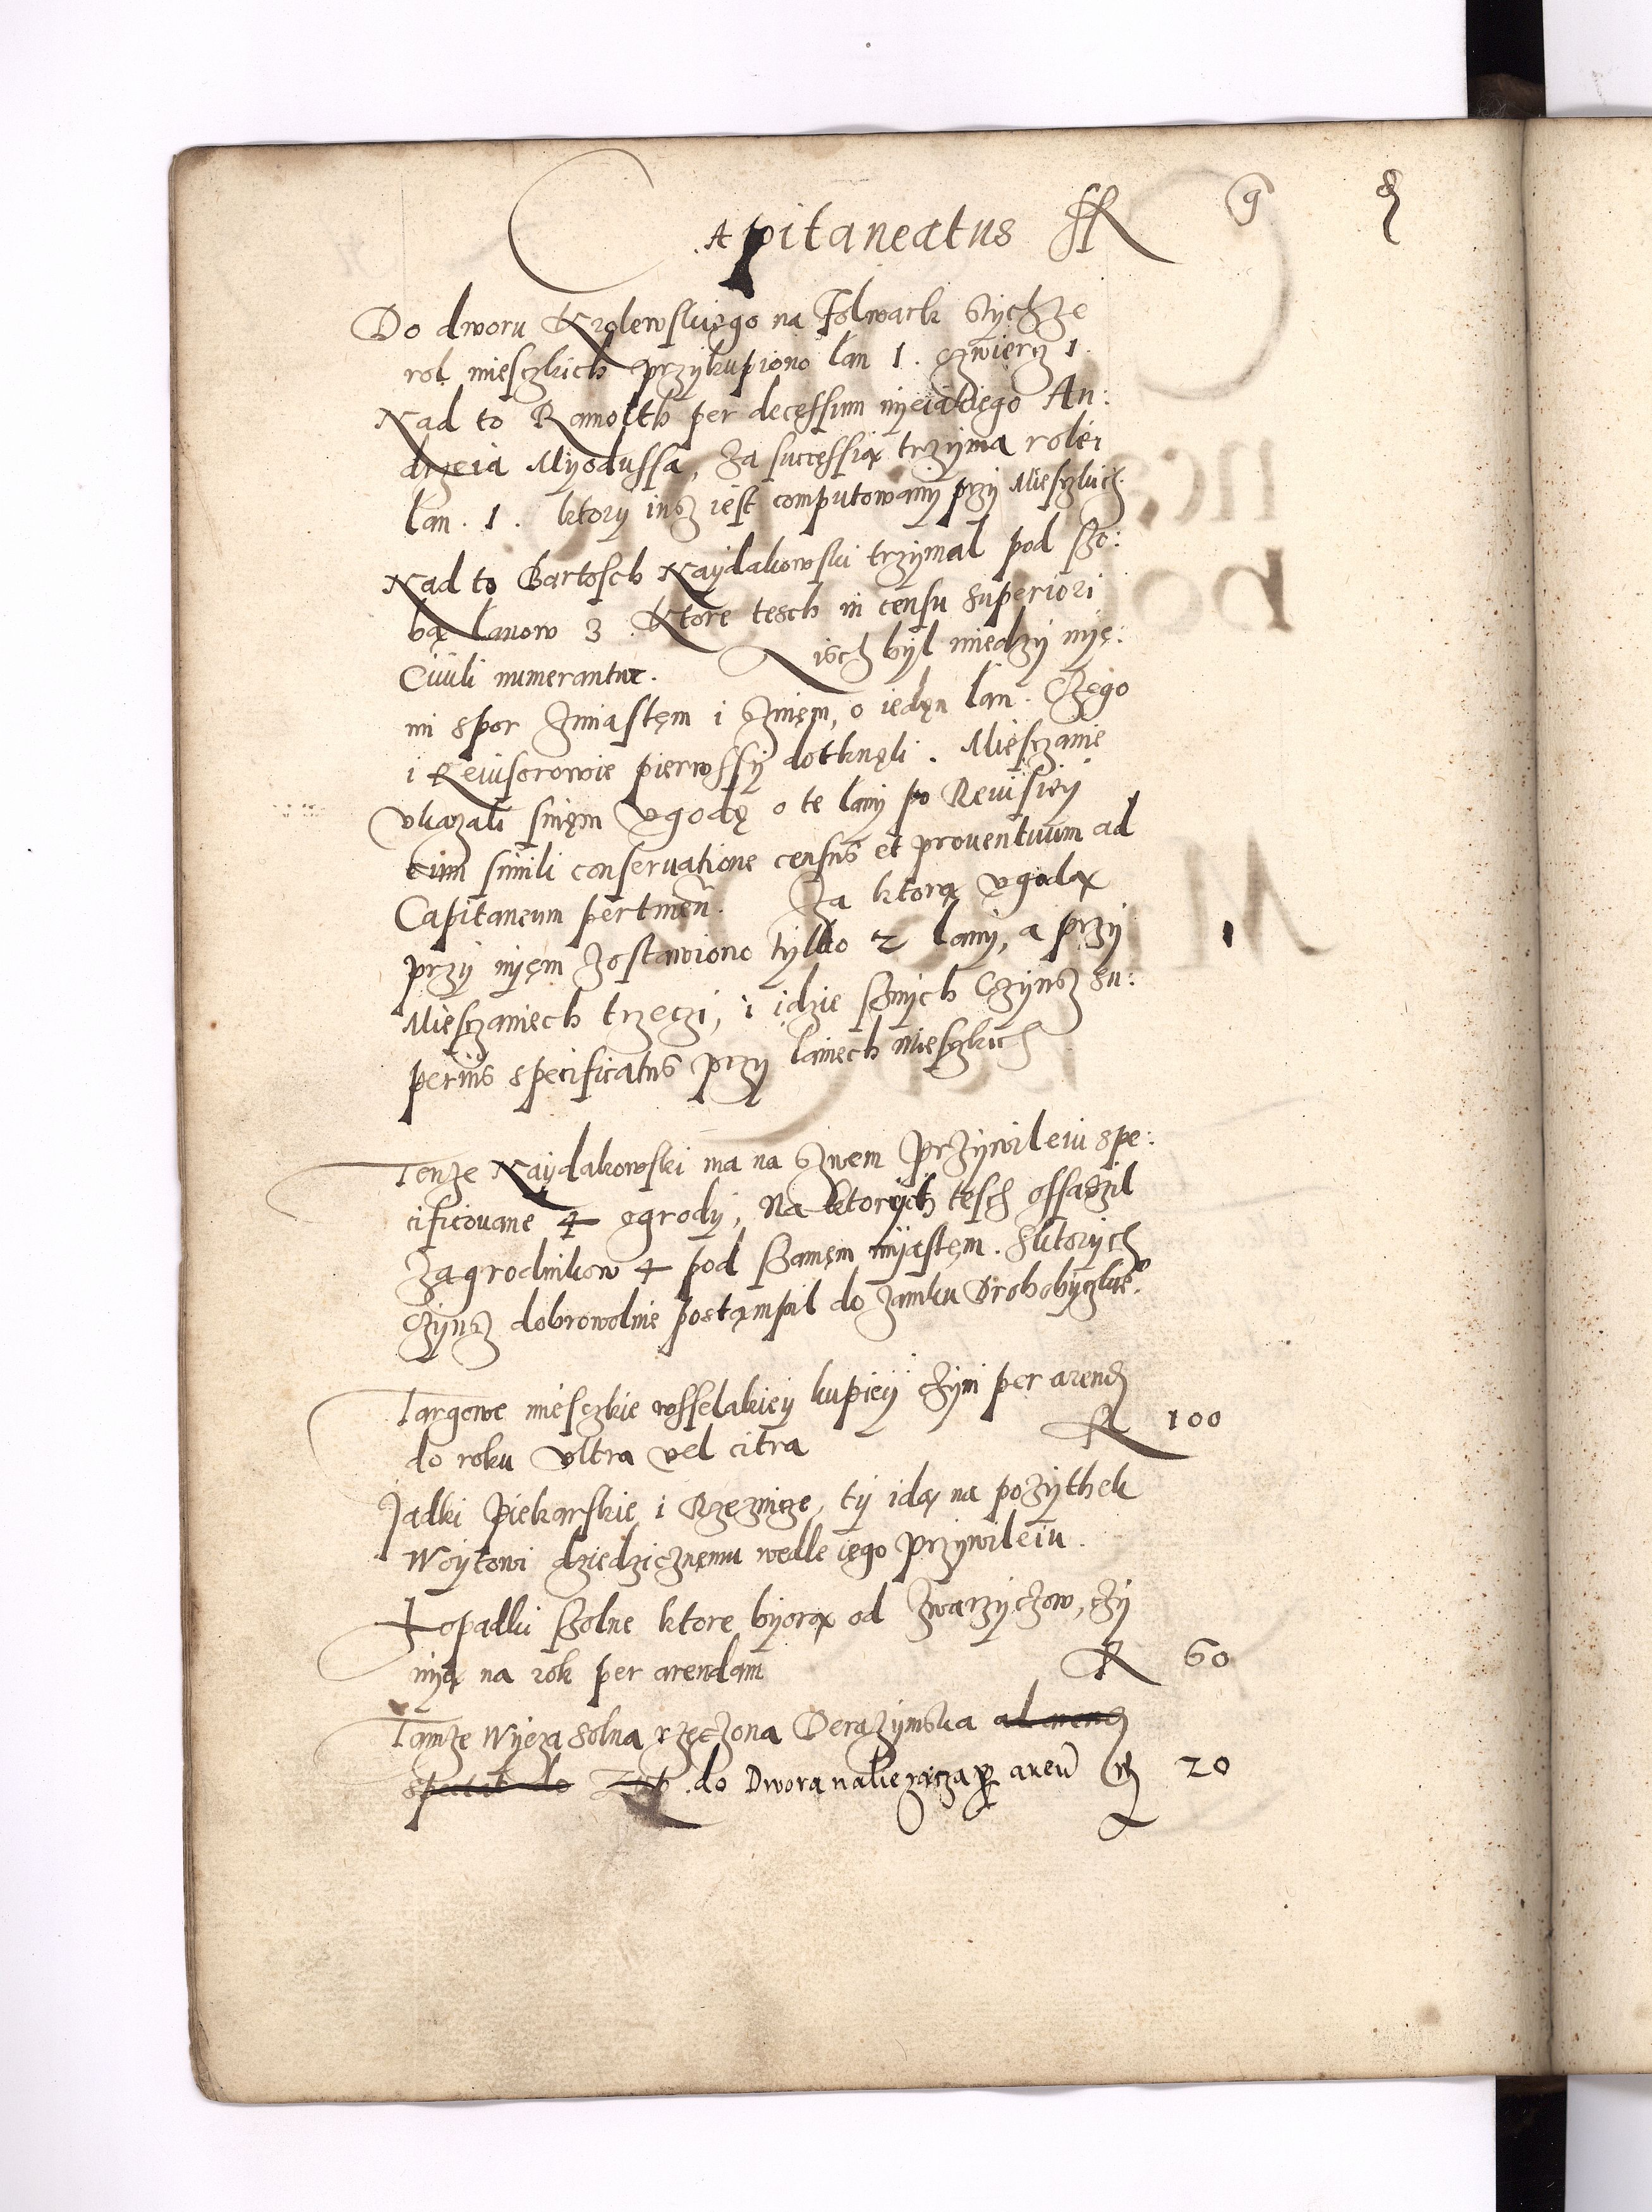 Capitaneatus fl g ₰
Do dworu Krolewskiego na Folwark stychze
rol miesczkich przykupiono łan 1. czwierz 1.
Nad to Ramolth per decessum nyeiakiego An:
drzeia Myodussa, za successią trzyma rolei
łan. 1. ktory insz iest computowany przy Miesczkich.
Nad to Bartosch Naydakowski trzymal pod szo:
bą Lanow 3. Ktore tesch in censu superiori
Ciuili numerantur. isch był miedzy nyę:
mi spor Zmiastęm i Znięm, o iedęn łan. Czego
i Reuisorowie pierwssy dotknęli. Miesczanie
vkazali snięm vgodę o te łany po Reuisiey
cum simili conseruatione census et prouentuum ad
Capitaneum pertinen. Za ktorą vgodą
przy nyęm zostawiono tylko 2 łany, a przy
Miesczaniech trzeczi, i idzie sznych Czynsz su:
perius specificatus przy łaniech mieszkich
Tenze Naydakowski ma na Swem Przywileiu spe:
cificouane 4 ogrody, Na ktorych tesch ossadzil
Zagrodnikow 4 pod Szamęm myastęm. sktorych
Czynsz dobrowolnie postąmpil do zamku Drohobyczkie°
Targowe miesczkie wsselakiey kupiey czyni per arend
do roku vltra vel citra fl 100
Jadki Piekarskie i Rzeznicze, ty idą na pozythek
Woytowi dziedzicznęmu wedle iego przywileiu.
Topadki Szolne ktore byorą od Zwarzyczow, czy
nyą na rok per arendam fl 60
Tamze Wyeza solna rzeczona Derazynska ad arend
spectat do do Dwora nalezącza per aren fl 20